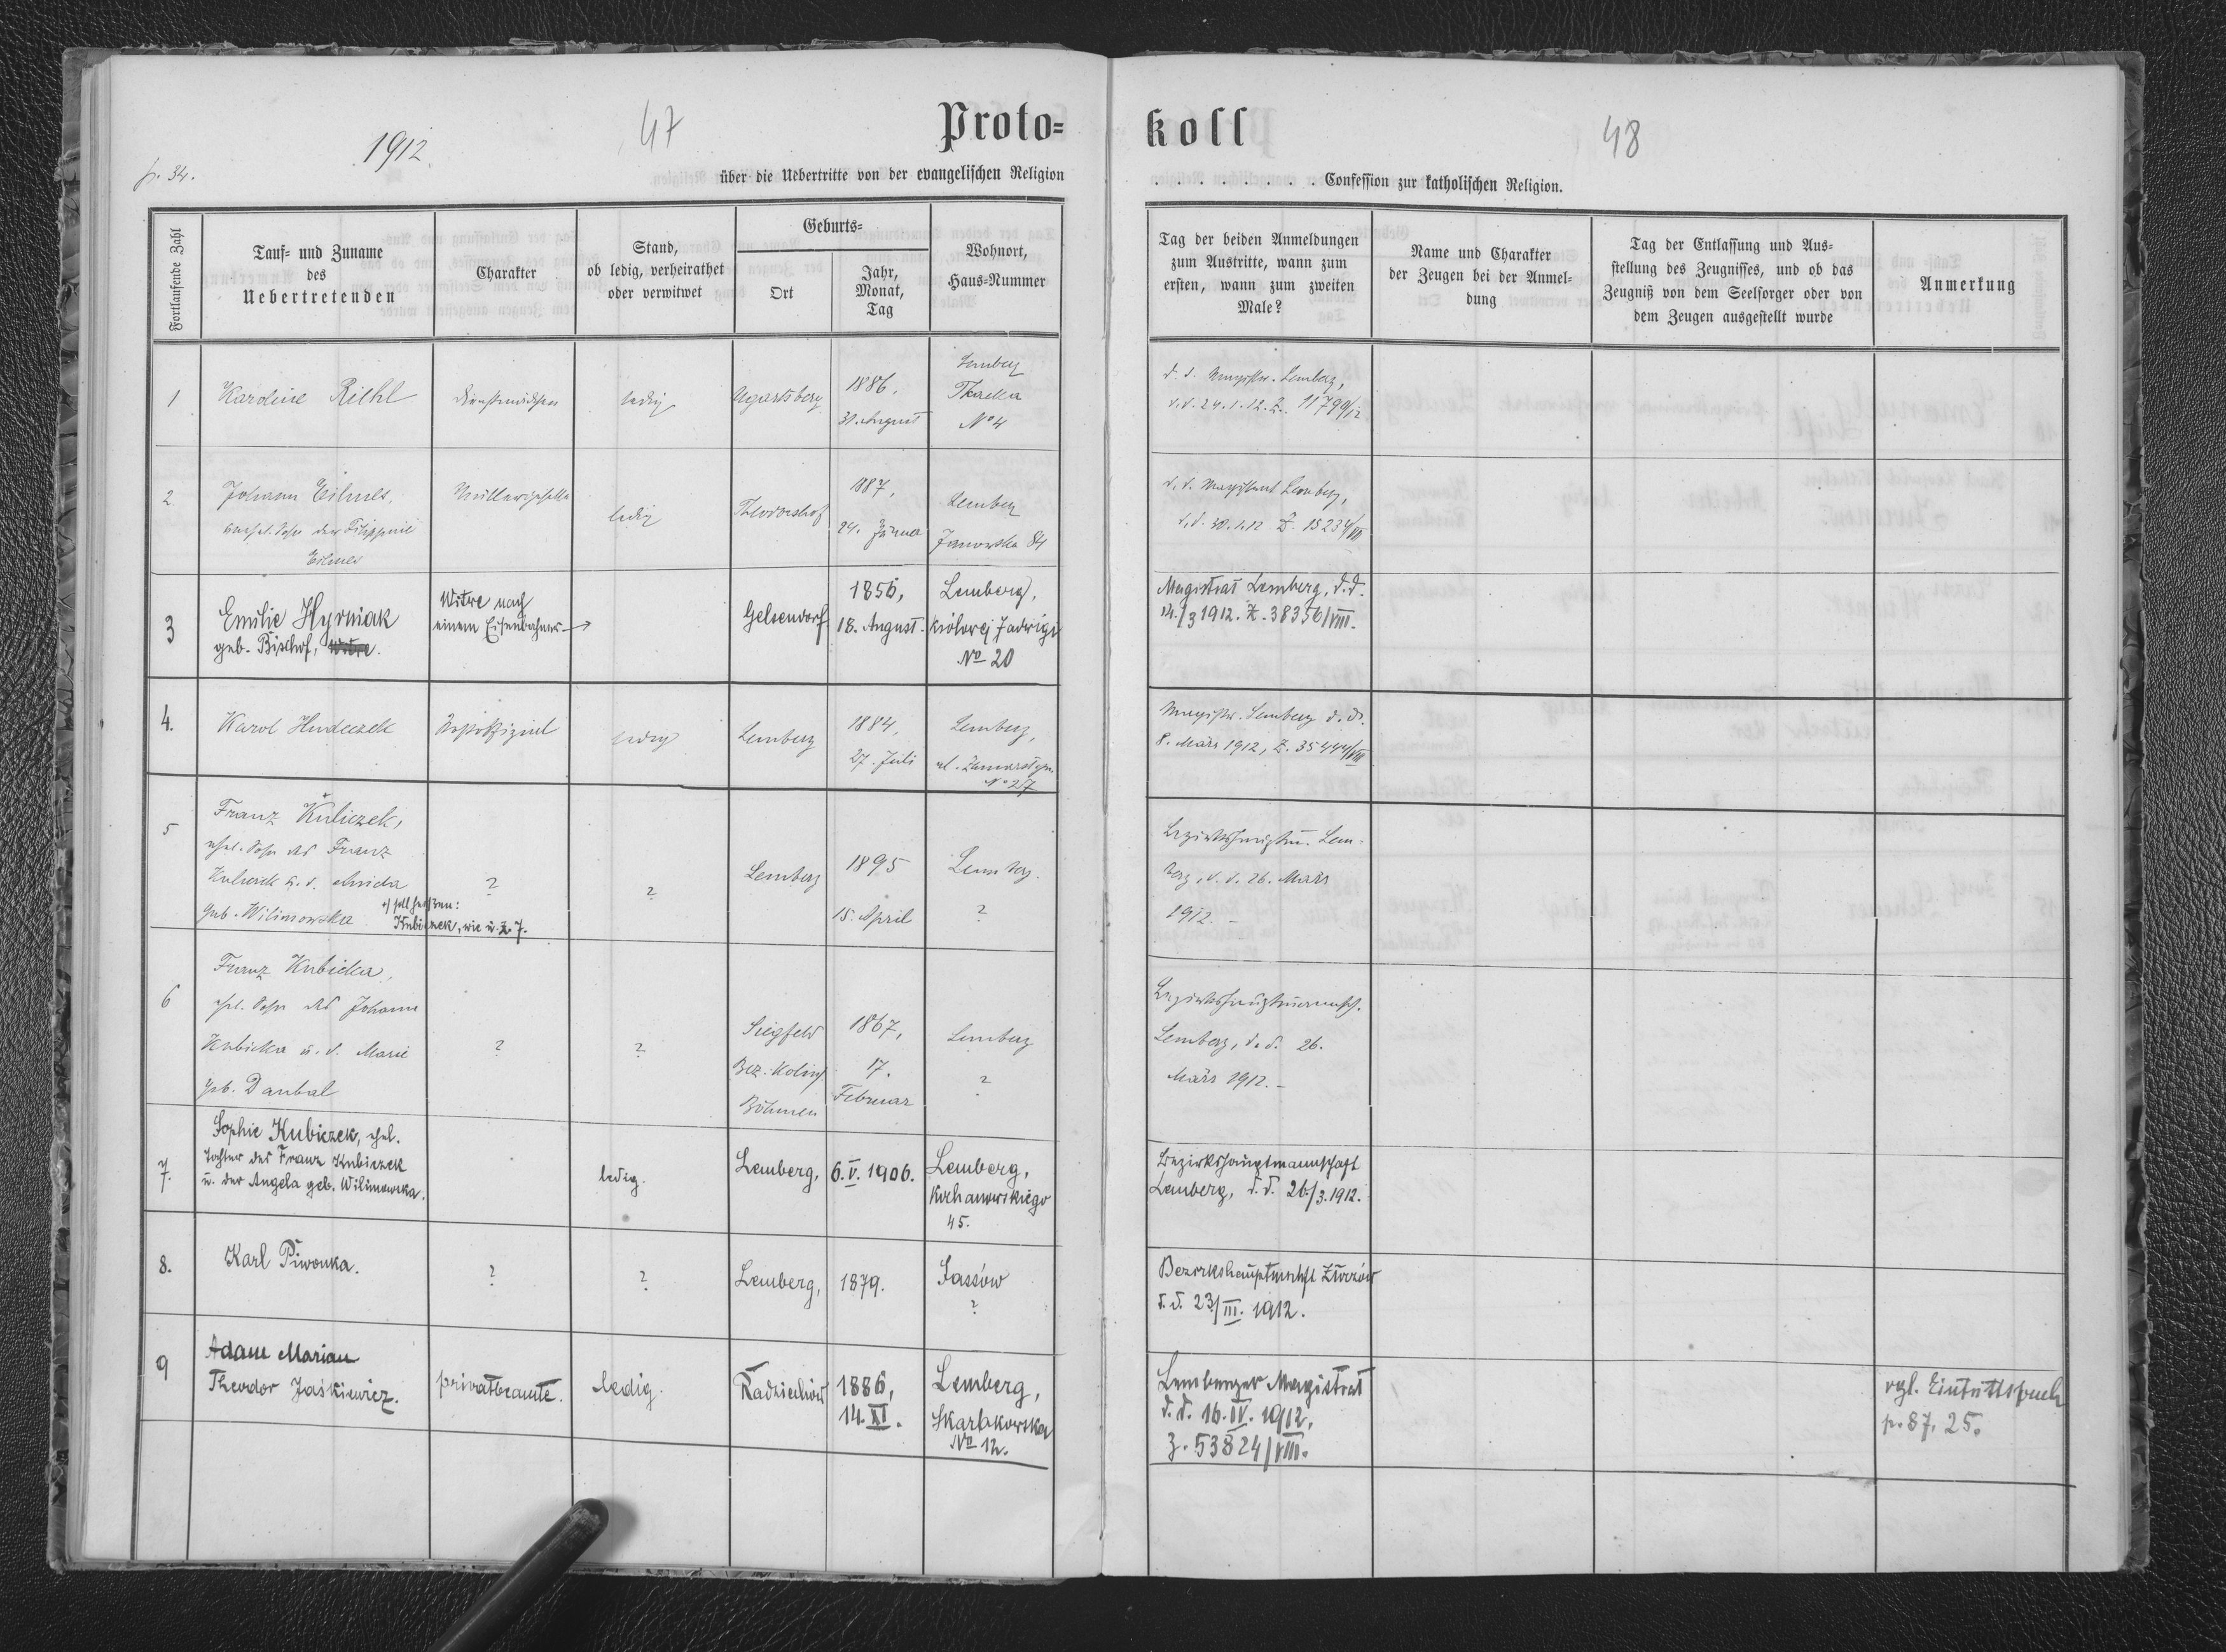 p. 34.
1912.
47
Proto=
über die Uebertritte von der evangelischen Religion
Fortlaufende Zahl
Tauf= und Zuname
des
Uebertretenden
Charakter
Stand,
ob ledig, verheirathet
oder verwitwet
Geburts=
Ort
Jahr,
Monat,
Tag
Wohnort,
Haus=Nummer
1
Karoline Riehl
Dienstmädchen
ledig
Ugartsberg
1886,
31. August
Lemberg
Tkacka
No 4
2
Johann Eilmes,
unehel. Sohn der Filippine
Eilmes
Müllergeselle
ledig
Theodorshof
1887,
24. Jänner
Lemberg
Janowska 84
3
Emilie Hyrniak
geb. Bischof, Witwe.
Witwe nach
einem Eisenbahner
Gelsendorf
1856,
18. August.
Lemberg,
królowej Jadwigi
No 20
4.
Karol Hudeczek
ledig
Lemberg
1884,
27. Juli
Lemberg,
ul. Zamarstyn.
No 27
5
Franz Kuliczek,
ehel. Sohn des Franz
u. d.
geb. Wilimowska
+) soll heißen:
Kubiczek, wie u. Z. 7.
?
?
Lemberg
1895
15. April
Lemberg.
?
6
Franz Kubicka,
ehel. Sohn des Johann
Kubicka u. d. Marie
geb. Daubal
?
?
Siegfeld
Bez. Kolin
Böhmen
1867,
17.
Februar
Lemberg
?
7.
Sophie Kubiczek, ehel.
Tochter des Franz Kubiczek
u. der Angela geb. Wilimowska.
ledig.
Lemberg,
6.V.1906.
Lemberg,
Kochanowskiego
45.
8.
Karl Piwonka.
?
?
Lemberg,
1879.
Sassów
?
9
Adam Marian
Theodor Jaśkiewicz.
Privatbeamte.
ledig.
Radziechów
1886,
14.XI.
Lemberg,
Skarbkowska
No 12.
koll
48
. . . . . . . . Confession zur katholischen Religion.
Tag der beiden Anmeldungen
zum Austritte, wann zum
ersten, wann zum zweiten
Male?
Name und Charakter
der Zeugen bei der Anmel=
dung
Tag der Entlassung und Aus=
stellung des Zeugnisses, und ob das
Zeugniß von dem Seelsorger oder von
dem Zeugen ausgestellt wurde
Anmerkung
d. d. Magistr. Lemberg,
d.d. 24.1.12. Z. 11799/12
d. d. Magistrat Lemberg,
d.d. 30.1.12 Z. 15234/VIII
Magistrat Lemberg, d.d.
14./3 1912. Z. 38356/VIII.
Magistr. Lemberg d. d.
8. März 1912, Z. 35444/VIII
Bezirkshauptm. Lem-
berg, d. d. 26. März
1912. -
Bezirkshauptmannsch.
Lemberg, d.d. 26.
März 1912. -
Bezirkshauptmannschaft
Lemberg, d.d. 26/3.1912.
Bezirkshauptmschft Złoczów
d.d. 23/III. 1912.
Lemberger Magistrat
d.d. 16.IV.1912,
Z. 53824/VIII.
vgl. Eintrittsbuch
p. 87, 25.